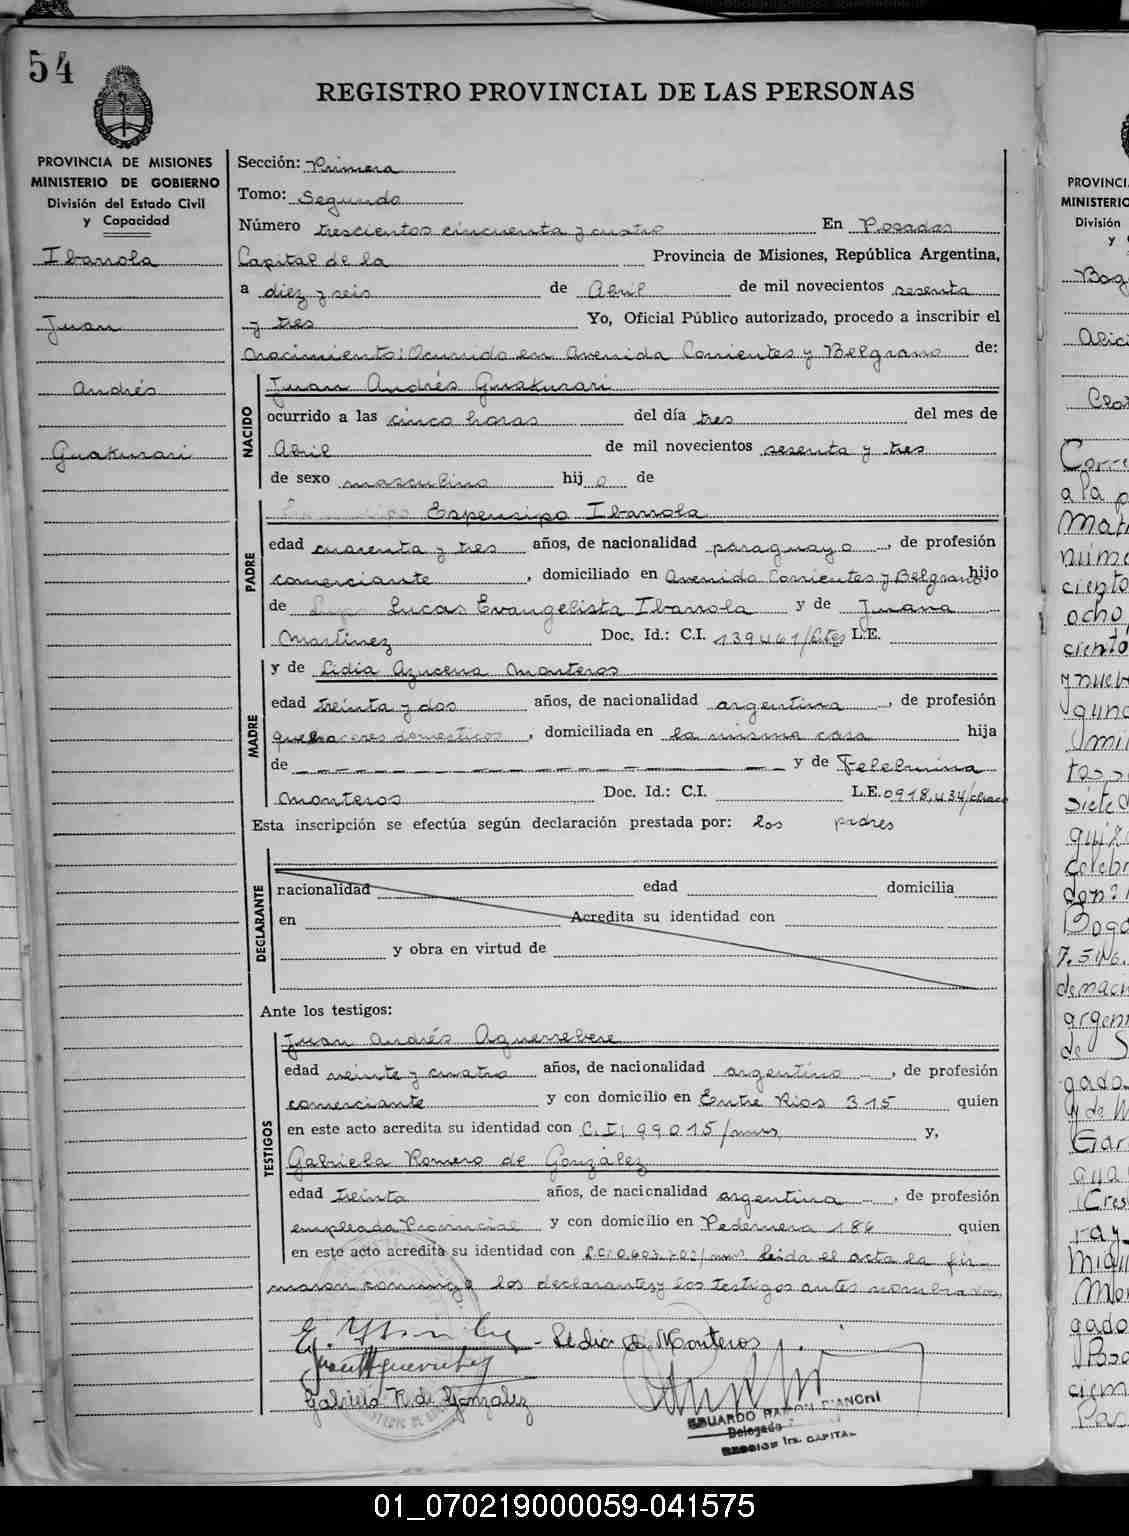 54
REGISTRO PROVINCIAL DE LAS PERSONAS
PROVINCIA DE MISIONES
MINISTERIO DE GOBIERNO
División del Estado Civil
y Capacidad
Ibarrola
Juan
Andrés
Guakurari
Sección: Primera
Tomo: Segundo
Número trescientos cincuenta y cuatro En Posadas
Capital de la Provincia de Misiones, República Argentina,
a diez y seis de Abril de mil novecientos sesenta
y tres Yo, Oficial Público autorizado, procedo a inscribir el
nacimiento: Ocurrido en Avenida Corrientes y Belgrano de:
NACIDO
Juan Andrés Guakurari
ocurrido a las cinco horas del día tres del mes de
Abril de mil novecientos sesenta y tres
de sexo masculino hijo de
PADRE
Espensipo Ibarrola
edad cuarenta y tres años, de nacionalidad paraguayo, de profesión
comerciante, domiciliado en Avenida Corrientes y Belgrano hijo
de Lucas Evangelista Ibarrola y de Juana
Martinez Doc. Id.: C.I. 139461/ L.E.
MADRE
y de Lidia Azucena Monteros
edad treinta y dos años, de nacionalidad argentina, de profesión
quehaceres domesticos, domiciliada en la misma casa hija
de y de Felelmina
Monteros Doc. Id.: C.I. L.E. 0918.434/chaco
Esta inscripción se efectúa según declaración prestada por: los padres
DECLARANTE
nacionalidad edad domicilia
en Acredita su identidad con
y obra en virtud de
Ante los testigos:
TESTIGOS
Juan Andrés Aguerrebere
edad veinte y cuatro años, de nacionalidad argentino, de profesión
comerciante y con domicilio en Entre Rios 315 quien
en este acto acredita su identidad con C.I: 99015/mnes y,
Gabriela Romero de González
edad treinta años, de nacionalidad argentina, de profesión
empleada Provincial y con domicilio en Pedernera 186 quien
en este acto acredita su identidad con leida el acta la fir-
maron conmigo los declarantes y los testigos antes nombrados.
Lidia A. Monteros
Gabriela R. de González
EDUARDO RAMON BIANCHI
Delegado
SECCION 1ra. CAPITAL
PROVINCI
MINISTERIO
División
y
Bog
Alici
Corre
a la p
Mat
núme
ciento
ocho,
ciento
y nueve
guno
mil
siete
celebr
don:
Bogo
de naci
argen
de S
gado
y de M
Gar
Cres
ra y
Migu
gado
ciem
01_070219000059-041575